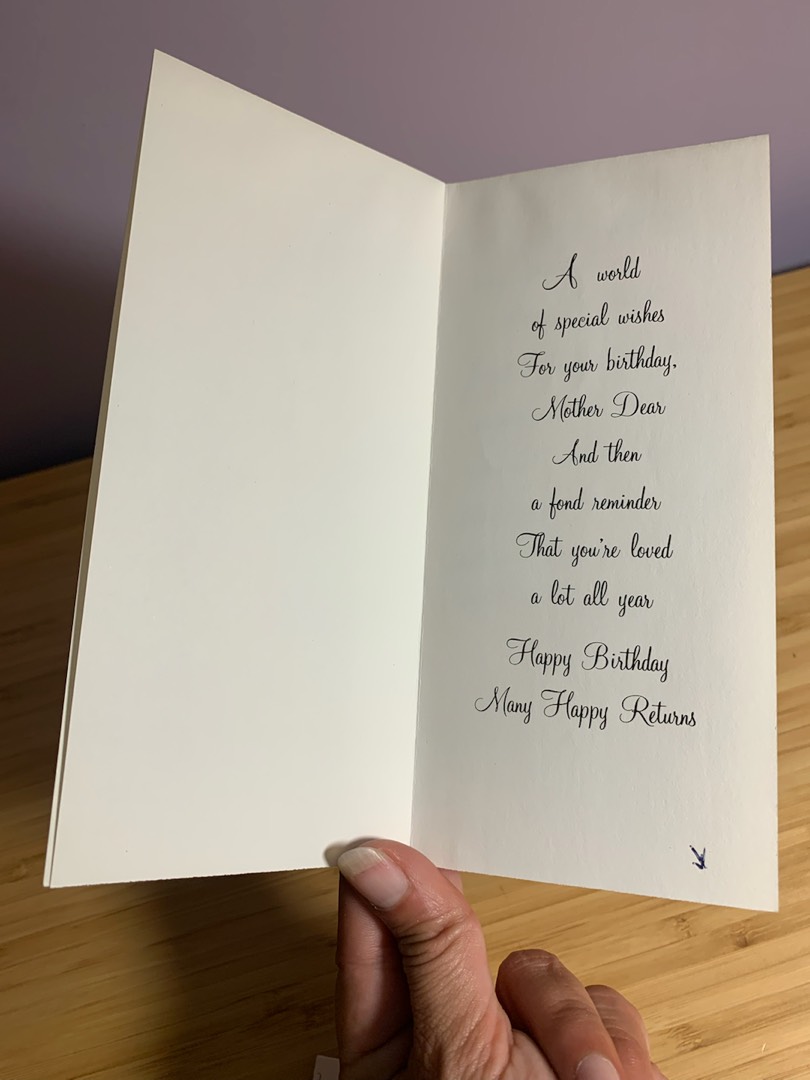 A world
of special wishes
For your birthday,
Mother Dear
And then
a fond reminder
That you're loved
a lot all year
Happy Birthday
Many Happy Returns